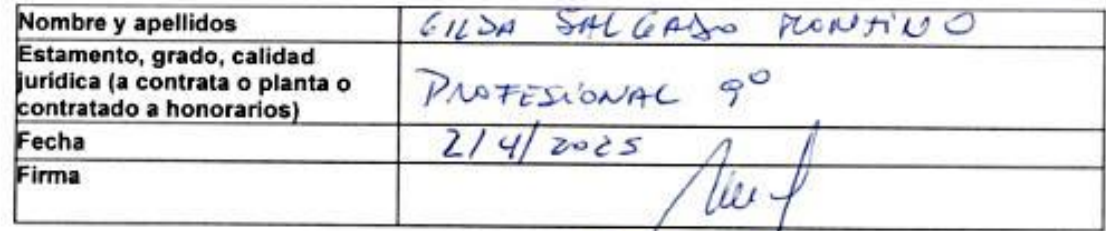 Nombre y apellidos
GILDA SALGADO
Estamento, grado, calidad
jurídica (a contrata o planta o
contratado a honorarios)
PROFESIONAL 9º
Fecha
2/4/2025
Firma